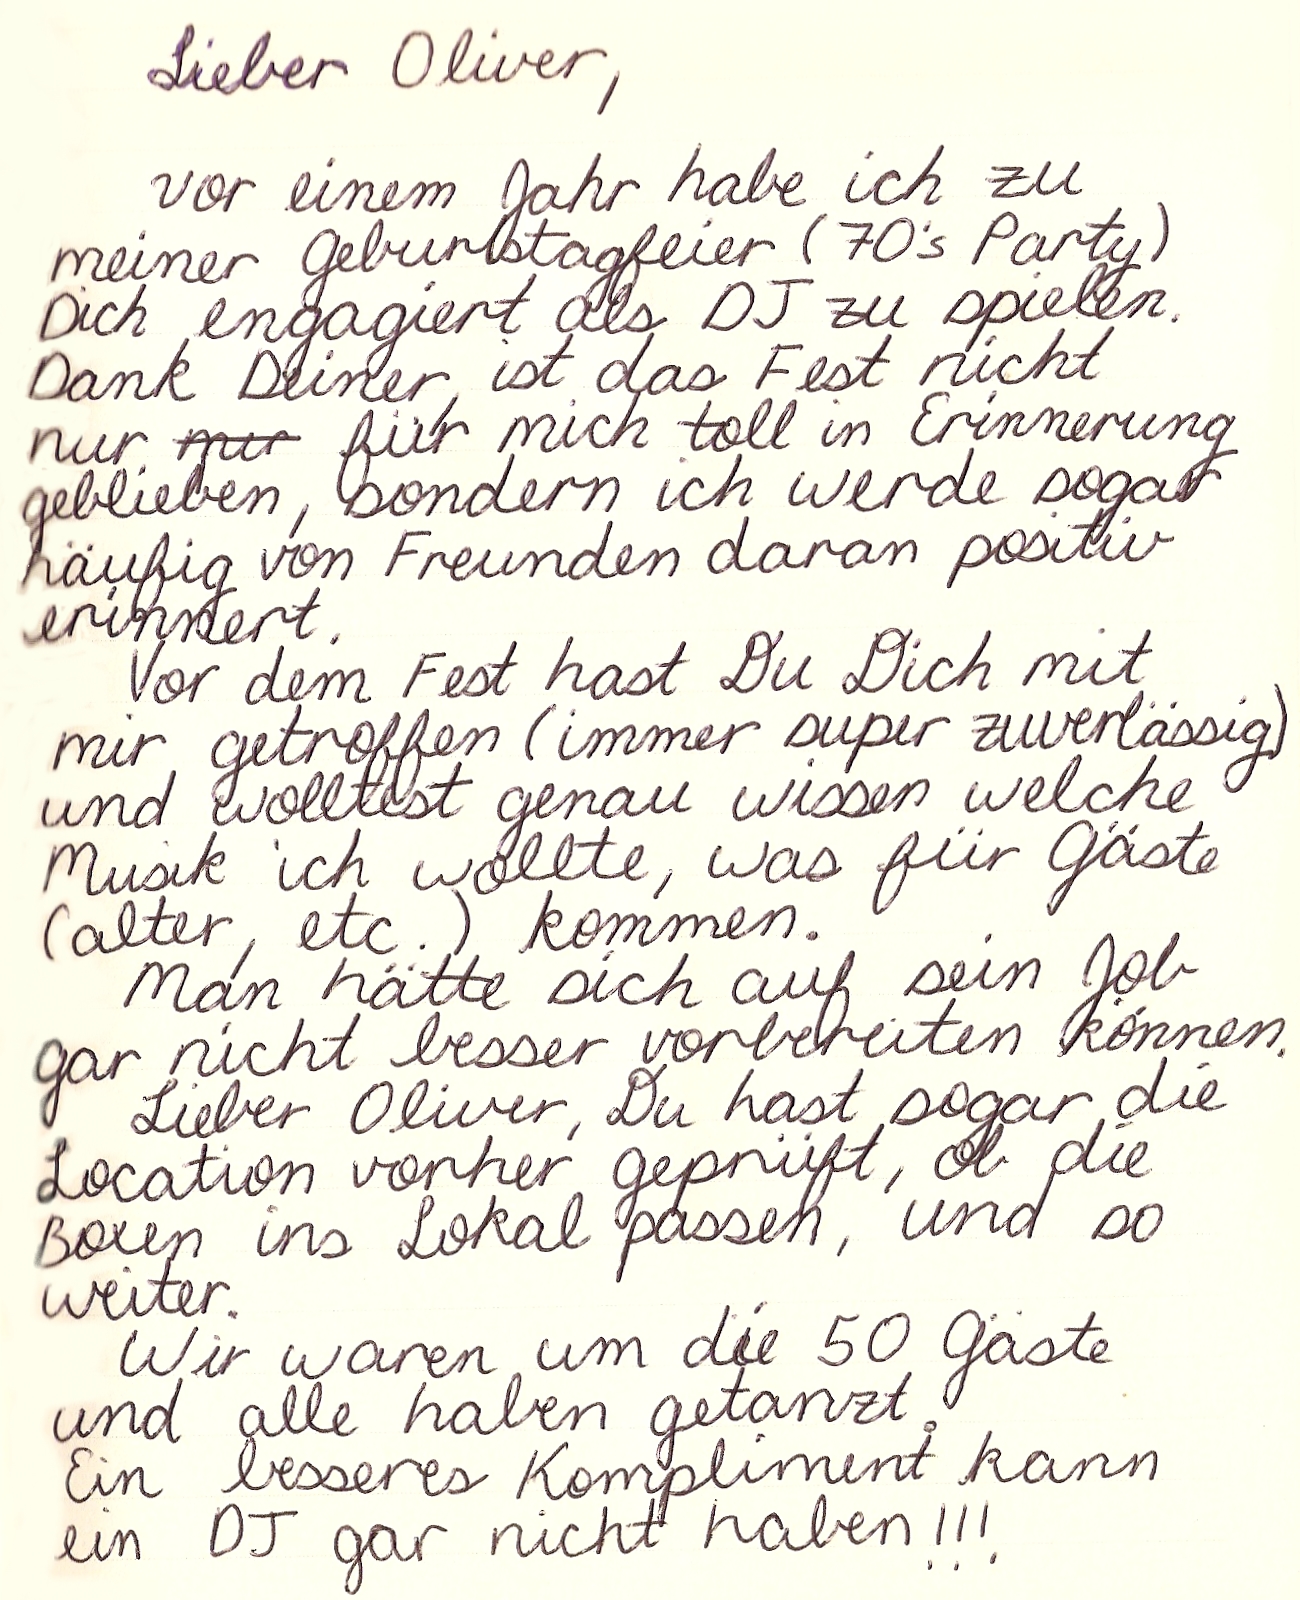 Lieber Oliver,
vor einem Jahr habe ich zu
meiner Geburtstagfeier (70's Party)
Dich engagiert als DJ zu spielen.
Dank Deiner, ist das Fest nicht
nur nur für mich toll in Erinnerung
geblieben, sondern ich werde sogar
häufig von Freunden daran positiv
erinnert.
Vor dem Fest hast Du Dich mit
mir getroffen (immer super zuverlässig)
und wolltest genau wissen welche
Musik ich wollte, was für Gäste
(alter, etc.) kommen.
Man hätte sich auf sein Job
gar nicht besser vorbereiten können.
Lieber Oliver, Du hast sogar die
Location vorher geprüft, ob die
Boxen ins Lokal passen, und so
weiter.
Wir waren um die 50 Gäste
und alle haben getanzt.
Ein besseres Kompliment kann
ein DJ gar nicht haben!!!